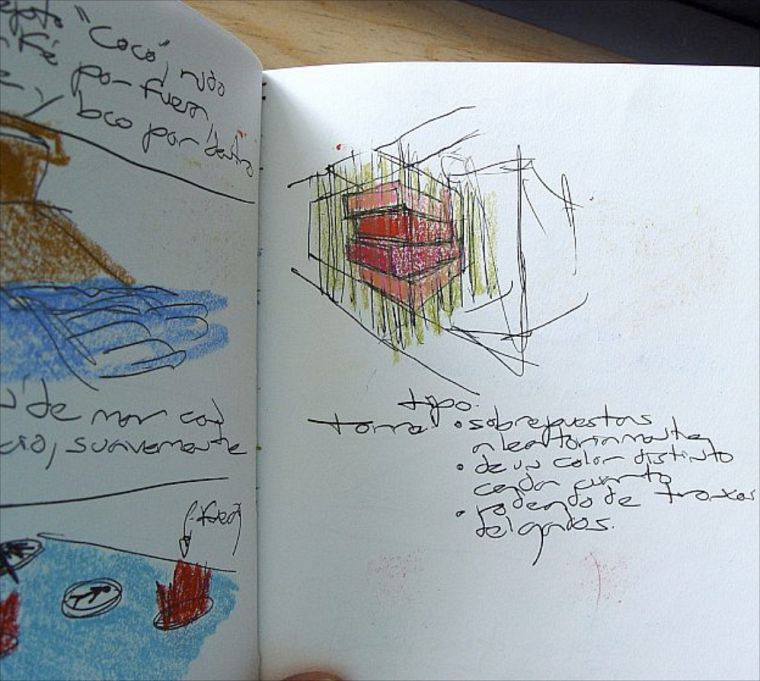 "Coco", rudo
por fuera
y bco por dentro
de mar con
suavemente
fuego
tipo
torre • sobrepuestas
aleatoriamente
• de un color distinto
cada cuarto
• rodeado de trazos
delgados.